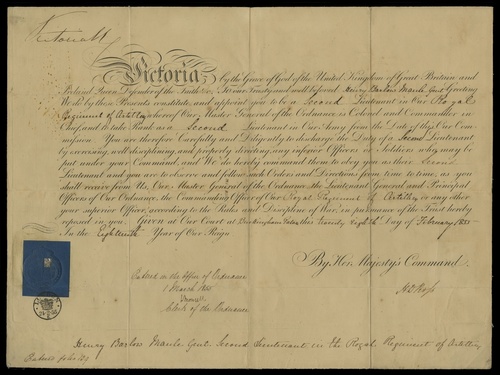 Victoria R
Victoria by the Grace of God of the United Kingdom of Great Britain and
Ireland Queen, Defender of the Faith &c. To our Trusty and well beloved Henry Barlow Maule Gent Greeting
We do by these Presents constitute, and appoint you to be a Second Lieutenant in Our Royal
Regiment of Artillery whereof Our Master General of the Ordnance is Colonel and Commander in
Chief, and to take Rank as a Second Lieutenant in Our Army from the Date of this Our Com-
mission. You are therefore Carefully and Diligently to discharge the Duty of Second Lieutenant
by exercising, well disciplining, and properly directing, any inferior Officers or Soldiers who may be
put under your Command, and We do hereby command them to obey you as their Second
Lieutenant and you are to observe and follow such Orders and Directions from time to time, as you
shall receive from Us, Our Master General of the Ordnance, the Lieutenant General and Principal
Officers of Our Ordnance, the Commanding Officer of Our Royal Regiment of Artillery or any other
your superior Officer, according to the Rules and Discipline of War, in pursuance of the Trust hereby
reposed in you. Given at Our Court at Buckingham Palace this Twenty Eighth Day of February 1855
In the Eighteenth Year of Our Reign
By Her Majesty's Command
Entered in the Office of Ordnance
1 March 1855
Clerk of the Ordnance
Henry Barlow Maule Gent Second Lieutenant in the Royal Regiment of Artillery